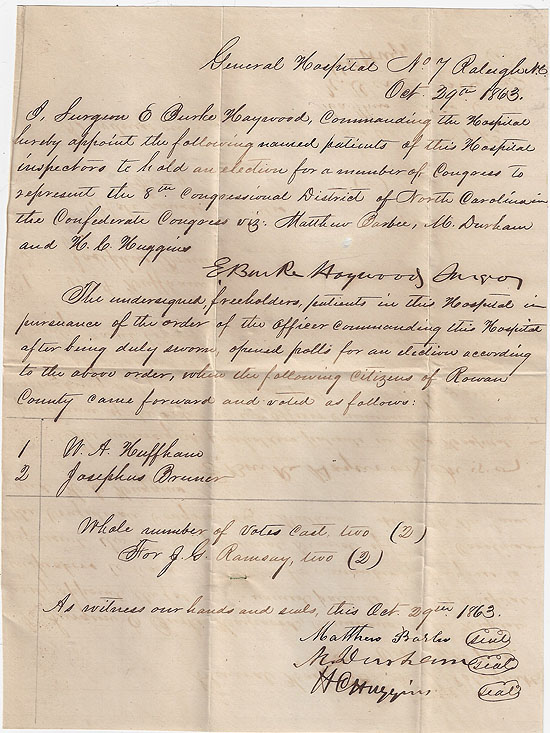 General Hospital No 7 Raleigh N.C.
Oct 29th 1863.
I, Surgeon E Burke Haywood, Commanding the Hospital
hereby appoint the following named patients of this Hospital
inspectors to hold an election for a member of Congress to
represent the 8th Congressional District of North Carolina in
the Confederate Congress viz: Matthew Barbee, M. Durham
and H. C. Huggins
E Burke Haywood Surgeon
The undersigned, freeholders, patients in this Hospital in
pursuance of the order of the Officer Commanding this Hospital
after being duly sworn, opened polls for an election according
to the above order, when the following Citizens of Rowan
County came forward and voted as follows:
1 W. A. Huffham
2 Josephus Bruner
Whole number of votes cast, two (2)
For J. G. Ramsay, two (2)
As witness our hands and seals, this Oct. 29th 1863.
Matthew Barbee seal
M. Durham seal
H C Huggins seal